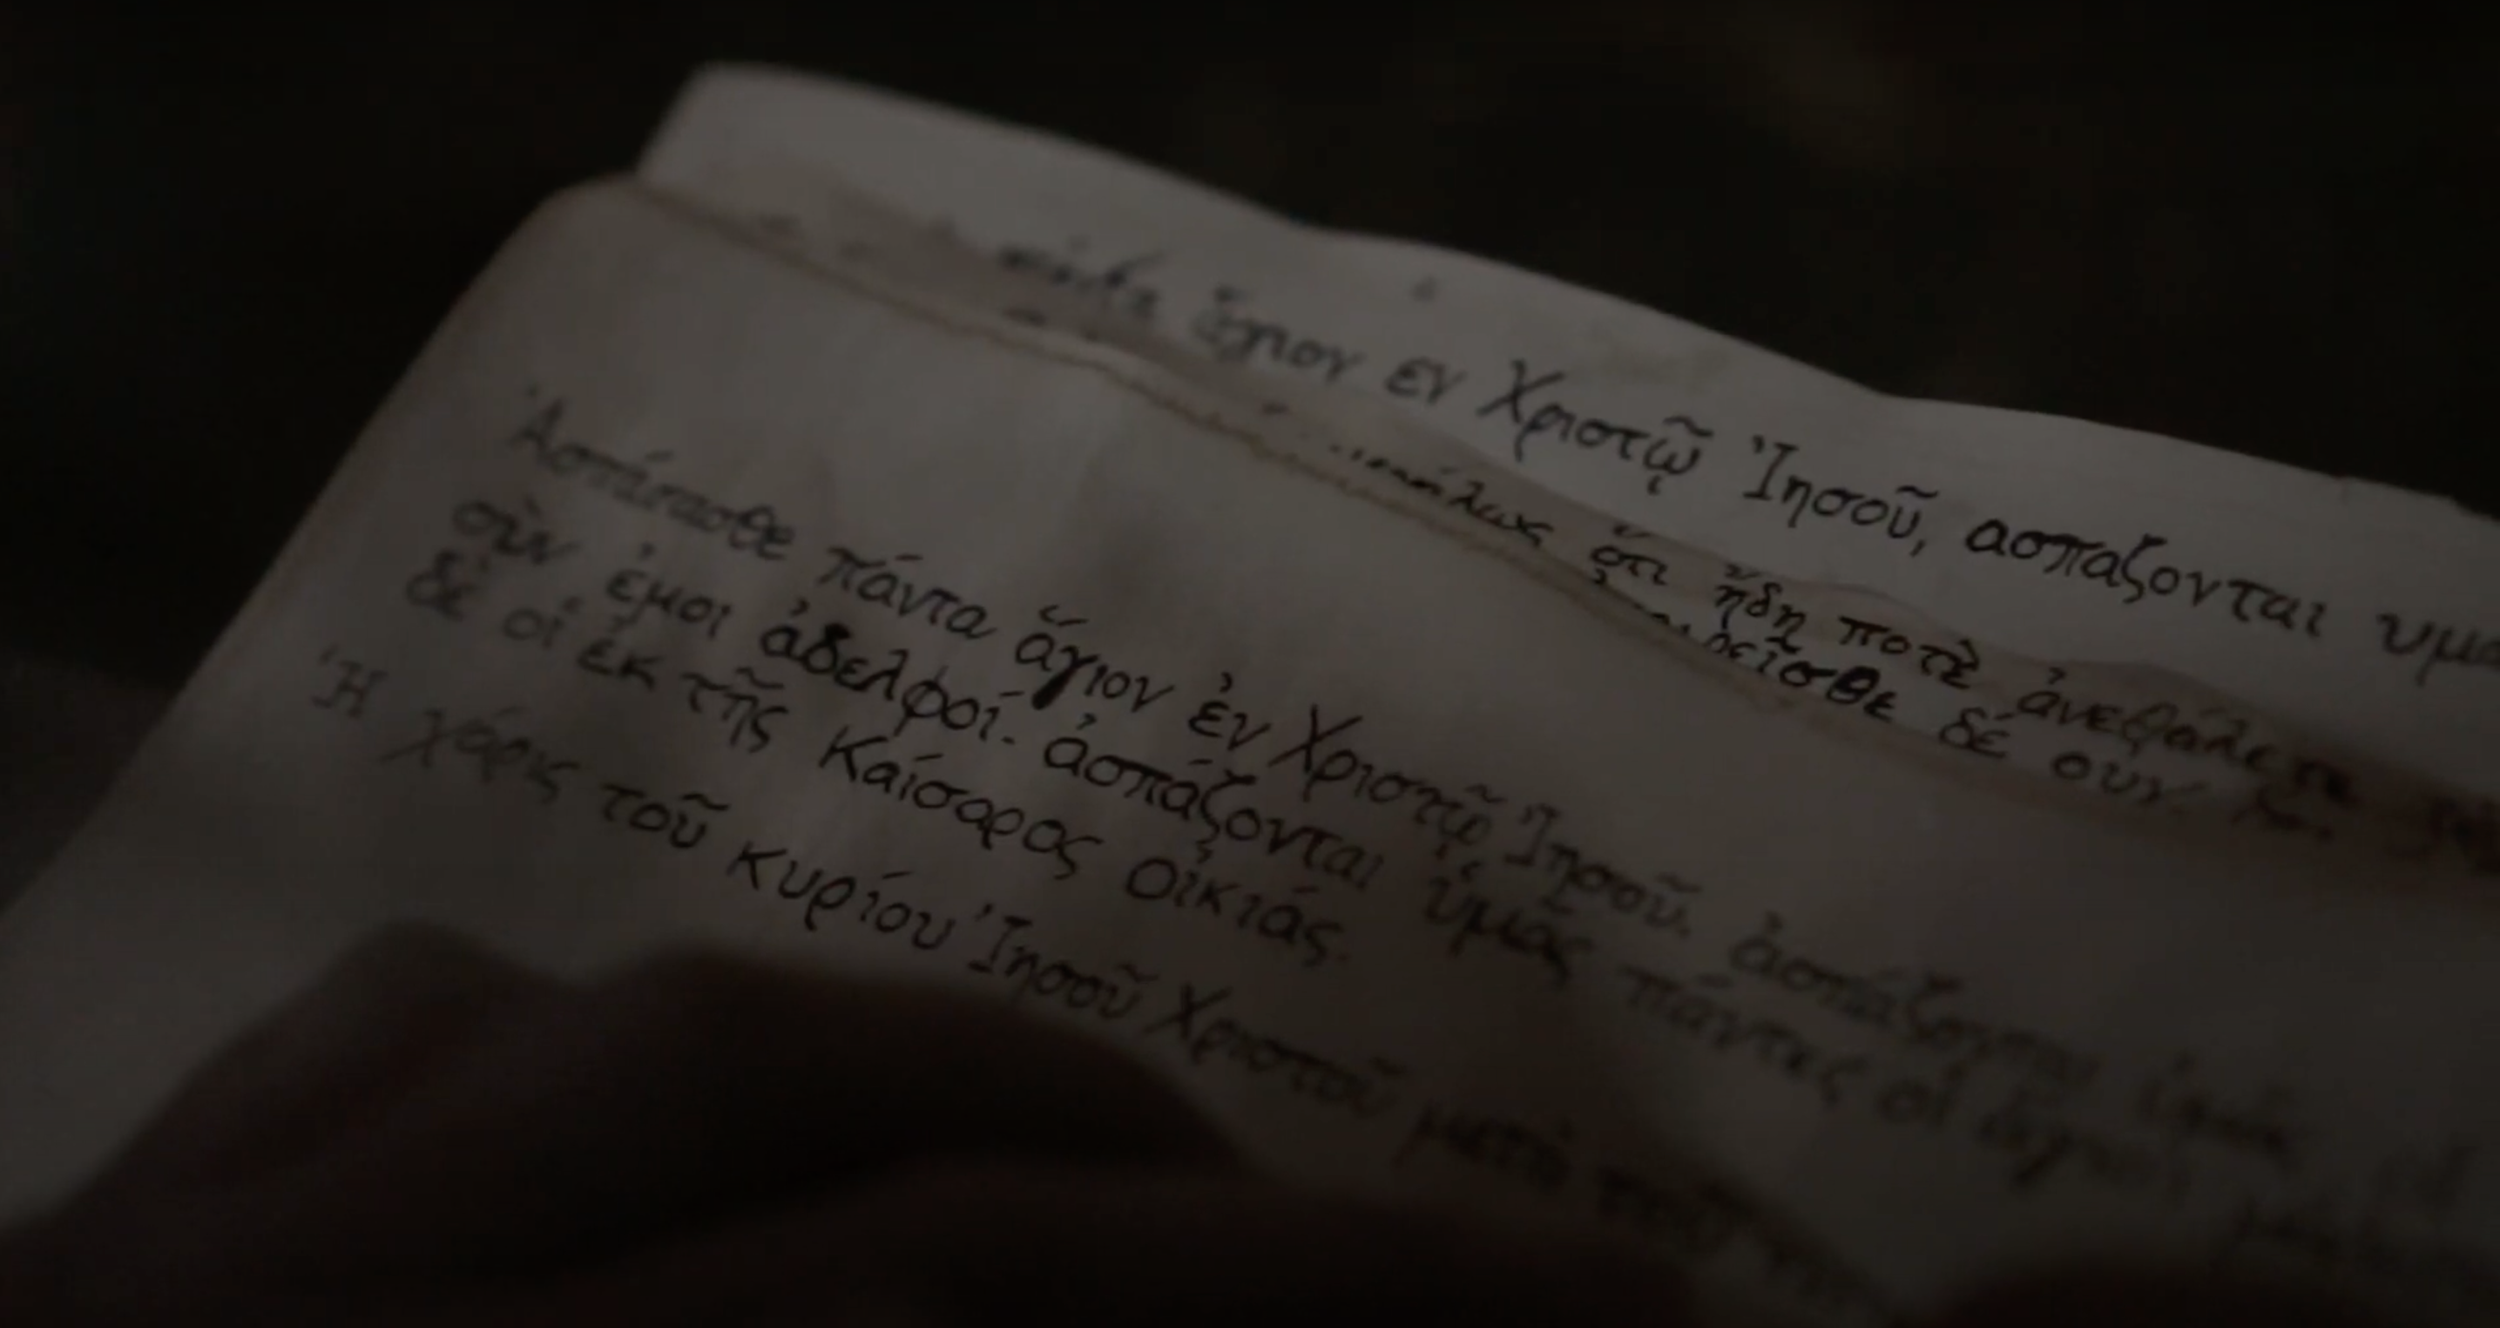 ἅγιον εν Χριστῷ Ἰησοῦ, ασπαζονται υμα
ὅτι ἤδη ποτὲ ἀνεθάλετε
δέ ουν
Ἀσπάσασθε πάντα ἅγιον ἐν Χριστῷ Ἰησοῦ. ἀσπάζονται ὑμᾶς οἱ
σὺν ἐμοι ἀδελφοί. ἀσπάζονται ὑμᾶς πάντες οἱ ἅγιοι
δὲ οἱ ἐκ τῆς Καίσαρος οἰκιάς.
Ἡ χάρις τοῦ κυρίου Ἰησοῦ Χριστοῦ μετὰ